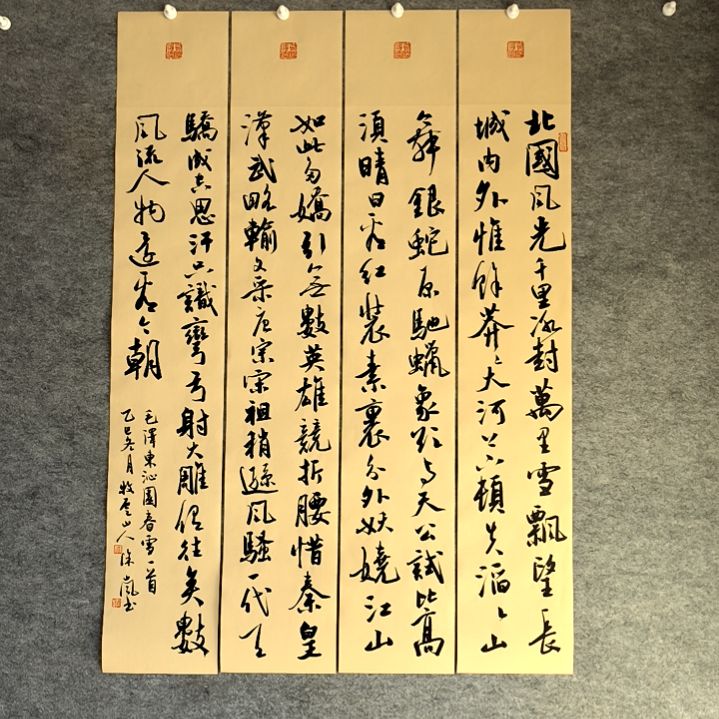 北國風光千里冰封萬里雪飄望長
城内外惟餘莽々大河上下頓失滔々山
舞銀蛇原馳蠟象欲与天公試比高
須晴日看紅裝素裹分外妖嬈江山
如此多嬌引無數英雄競折腰惜秦皇
漢武略輸文采唐宗宋祖稍遜風騷一代天
驕成吉思汗只識彎弓射大雕俱往矣數
風流人物還看今朝
毛澤東沁園春雪一首
乙巳冬月牧雲山人徐嵐書